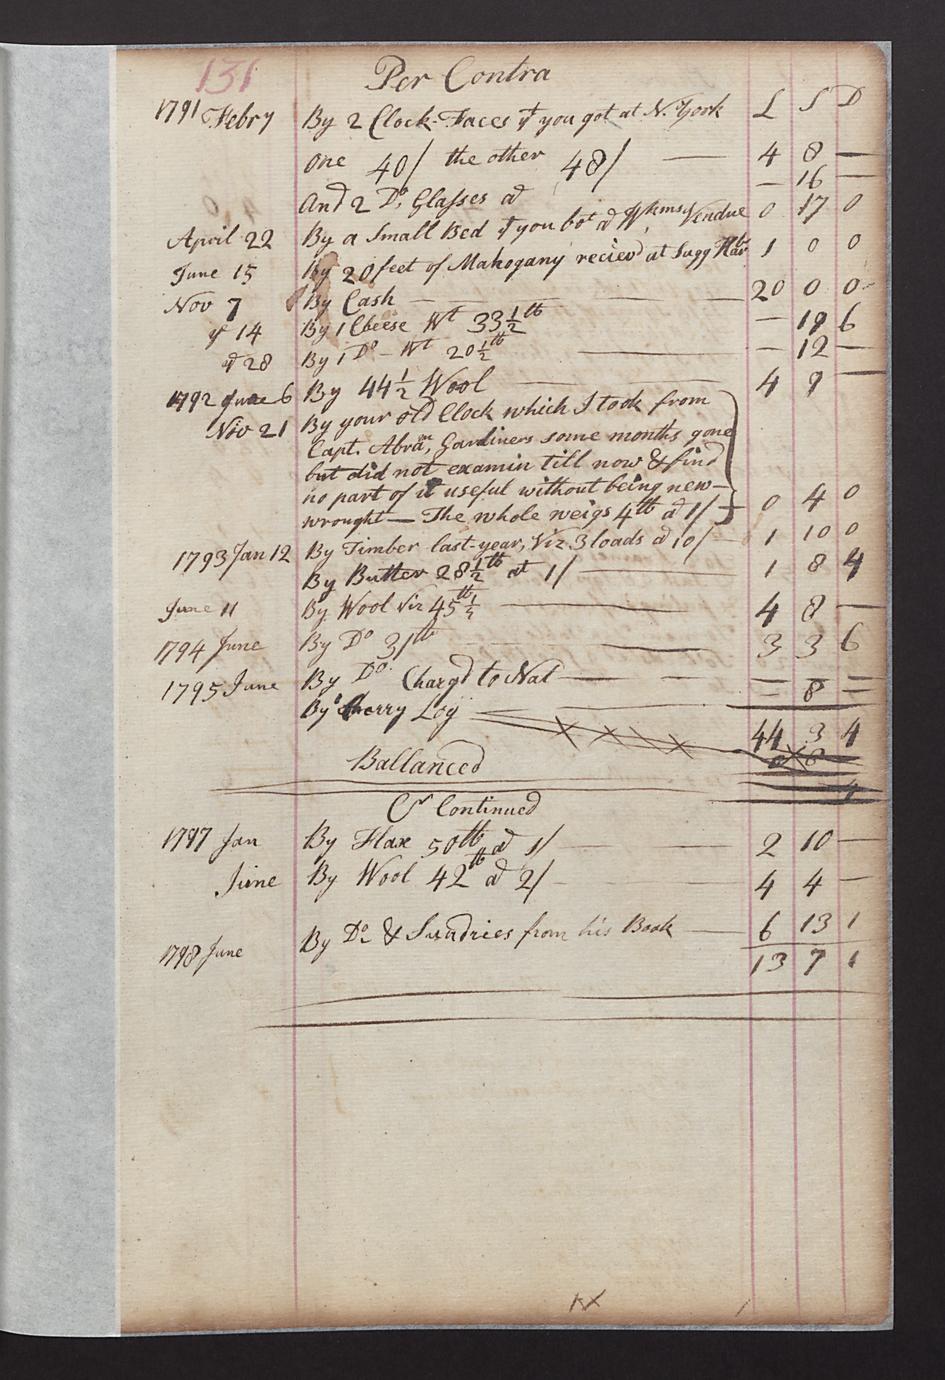 131 Per Contra
L S D
1791 Febry By 2 Clock-Faces yt you got at N. York
one 40/ the other 48/ — 4 8 —
And 2 Do. Glasses at — 16 —
April 22 By a Small Bed yt you bot at Wkms Vendue 0 17 0
June 15 By 20 feet of Mahogany recievd at Sagg Har 1 0 0
Nov 7 By Cash — 20 0 0
14 By 1 Cheese Wt 33 1/2 lb — 19 6
28 By 1 Do - Wt 20 1/2 lb — — 12 —
1792 June 6 By 44 1/2 Wool — 4 9 —
Nov 21 By your old Clock which I took from
Capt. Abram, Gardiners some months gone
but did not examin till now & find
no part of it useful without being new-
wrought — The whole weigs 4 lb at 1/ 0 4 0
1793 Jan 12 By Timber last-year, Viz 3 loads at 10/ — 1 10 0
By Butter 28 1/2 lb at 1/ — 1 8 4
June 11 By Wool Viz 45 lb 1/2 — 4 8 —
1794 June By Do 31 lb — 3 3 6
1795 June By Do. Chargd to Nat — — — —
By Cherry Log — 8 =
44 3 4
Ballanced
4
Cr Continued
1797 Jan By Flax 50 lb at 1/ — 2 10 —
June By Wool 42 lb at 2/ — 4 4 —
1798 June By Do. & Sundries from his Book — 6 13 1
13 7 1